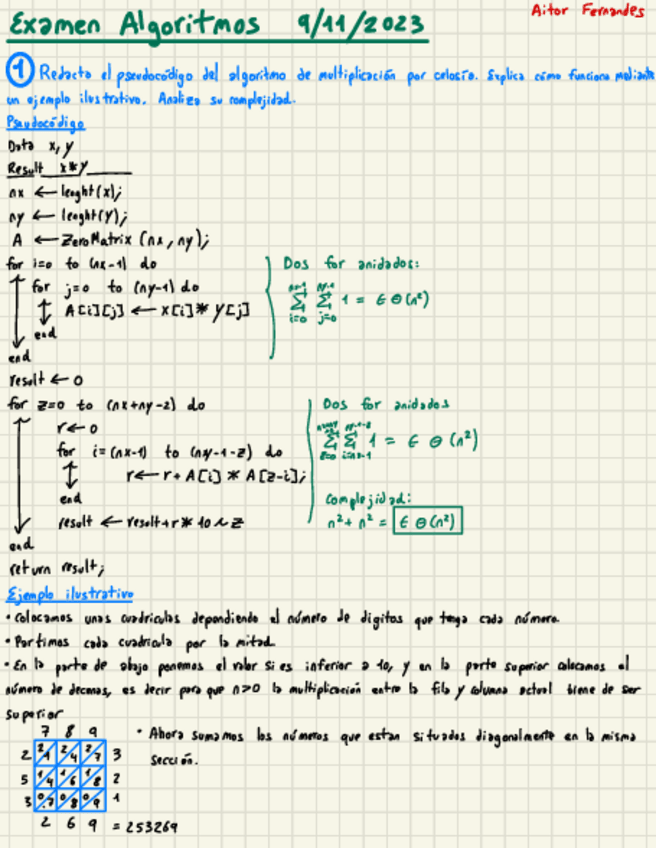 Examen Algoritmos 9/11/2023
Aitor Fernandes
1 Redacta el pseudocódigo del algoritmo de multiplicación por celosía. Explica cómo funciona mediante
un ejemplo ilustrativo. Analiza su complejidad.
Pseudocódigo
Data x, y
Result x*y
nx ← lenght(x);
ny ← lenght(y);
A ← ZeroMatrix (nx, ny);
for i=0 to (nx-1) do
for j=0 to (ny-1) do
A[i][j] ← x[i] * y[j]
end
end
Dos for anidados:
nx-1 ny-1
Σ Σ 1 = ∈ Θ(n²)
i=0 j=0
result ← 0
for z=0 to (nx+ny-2) do
r ← 0
for i=(nx-1) to (ny-1-z) do
r ← r + A[i] * A[z-i];
end
result ← result+r * 10 ^ z
end
return result;
Dos for anidados
Σ Σ 1 = ∈ Θ (n²)
z=0 i=nx-1
Complejidad:
n² + n² = ∈ Θ(n²)
Ejemplo ilustrativo
• Colocamos unas cuadriculas dependiendo el número de digitos que tenga cada número.
• Partimos cada cuadricula por la mitad
• En la parte de abajo ponemos el valor si es inferior a 10, y en la parte superior colocamos el
número de decenas, es decir para que n>0 la multiplicación entre la fila y columna actual tiene de ser
superior
• Ahora sumamos los números que estan situados diagonalmente en la misma
sección.
7 8 9
2 2/1 2/4 2/7 3
5 1/4 1/6 1/8 2
3 0/7 0/8 0/9 1
2 6 9 = 253269